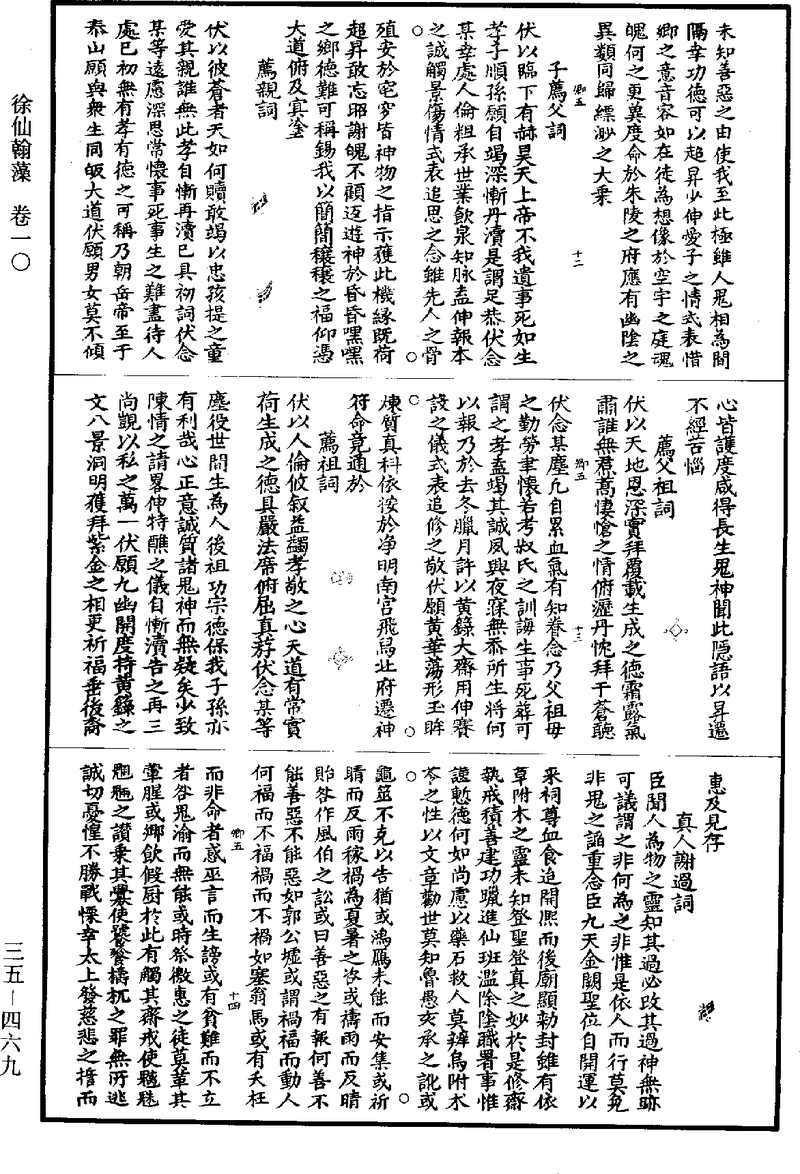 徐仙翰藻　卷一〇
三五—四六九
未知善惡之由使我至此極雖人鬼相為間
隔幸功德可以超昇少伸愛子之情式表惜
鄉之意音容如在徒為想像於空宇之庭魂
魄何之更冀度命於朱陵之府應有幽陰之
異類同歸縹渺之大乘
子薦父詞
伏以臨下有赫昊天上帝不我遺事死如生
孝子順孫願自竭深慚丹瀆是謂足恭伏念
某幸處人倫粗承世業飲泉知脉盍伸報本
之誠觸景傷情式表追思之念雖先人之骨
殖安於窀穸皆神物之指示獲此機緣既荷
超昇敢忘昭謝魄不顧返遊神於昏昏嘿嘿
之鄉德難可稱錫我以簡簡穰穰之福仰憑
大道俯及冥塗
薦親詞
伏以彼蒼者天如何贖敢竭以忠孩提之童
愛其親誰無此孝自慚再瀆已具初詞伏念
某等遠慮深思常懷事死事生之難盡待人
處已初無有孝有德之可稱乃朝岳帝至于
泰山願與衆生同皈大道伏願男女莫不傾
心皆護度咸得長生鬼神聞此隱語以昇遷
不經苦惱
薦父祖詞
伏以天地恩深實拜覆載生成之德霜露氣
肅誰無焄蒿悽愴之情俯瀝丹忱拜干蒼聽
伏念某塵凡自累血氣有知眷念乃父祖母
之勤勞聿懷若考叔氏之訓誨生事死葬可
謂之孝盍竭其誠夙興夜寐無忝所生將何
以報乃於去冬臘月許以黃籙大齋用伸賽
謝之儀式表追修之敬伏願黃華蕩形玉眸
煉質真科依按於净明南宫飛舄北府遷神
符命竟通於
薦祖詞
伏以人倫攸叙益蠲孝敬之心天道有常實
荷生成之德具嚴法席俯屈真莅伏念某等
塵役世間生為人後祖功宗德保我子孫亦
有利哉心正意誠質諸鬼神而無疑矣少致
陳情之請畧伸特醮之儀自慚瀆告之再三
尚覬以私之萬一伏願九幽開度持黃籙之
文八景洞明獲拜紫金之相更祈福垂後裔
惠及見存
真人謝過詞
臣聞人為物之靈知其過必改其過神無跡
可議謂之非何為之非惟是依人而行莫免
非鬼之謟重念臣九天金闕聖位自開運以
來祠尊血食迨開熙而後廟顯勑封雖有依
草附木之靈未知登聖登真之妙於是修齋
執戒積善建功躐進仙班濫除陰職署事惟
謹慙德何如尚慮以藥石救人莫辨烏附木
苓之性以文章勸世莫知魯愚亥承之訛或
龜筮不克以告猶或鴻鴈未能而安集或祈
晴而反雨稼禍為夏暑之咨或禱雨而反晴
貽咎作風伯之訟或曰善惡之有報何善不
能善惡不能惡如郭公墟或謂禍福而動人
何福而不福禍而不禍如塞翁馬或有夭枉
而非命者惑巫言而生謗或有貧難而不立
者咎鬼渝而無能或時祭徼惠之徒葷葷其
葷腥或鄉飲假厨於此有觸其齋戒使魑魅
魍魎之讚乘其釁使饕餮檮杌之罪無所逃
誠切憂惶不勝戰慄幸太上發慈悲之擔而